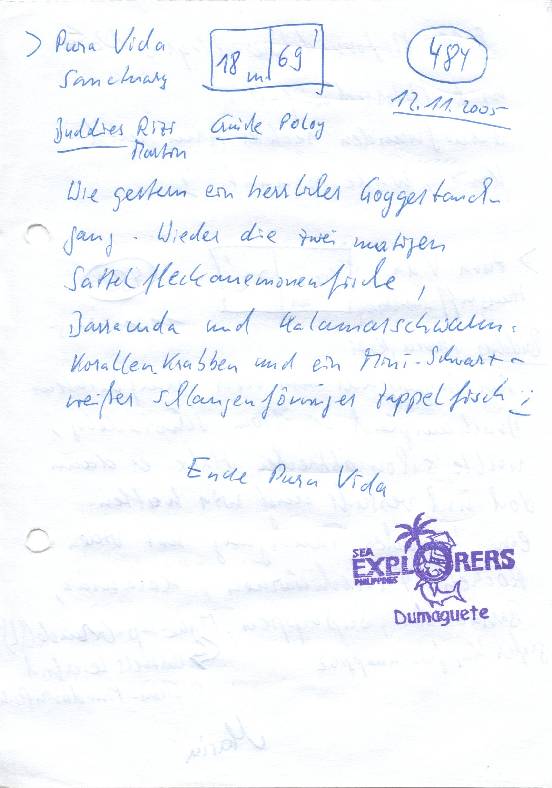 > Pura Vida
Sanctuary
18 m 69'
484
12.11.2005
Buddies Rizi
Martin
Guide Poloy
Wie gestern ein herrlicher Goggestauch-
gang. Wieder die zwei mutigen
Sattelfleckanemonenfische,
Barracuda und Kalamarschwärm.
Korallenkrabben und ein Mini-Schwarz-
weißer schlangenförmiger Zappelfisch
Ende Pura Vida
SEA
EXPLORERS
PHILIPPINES
Dumaguete